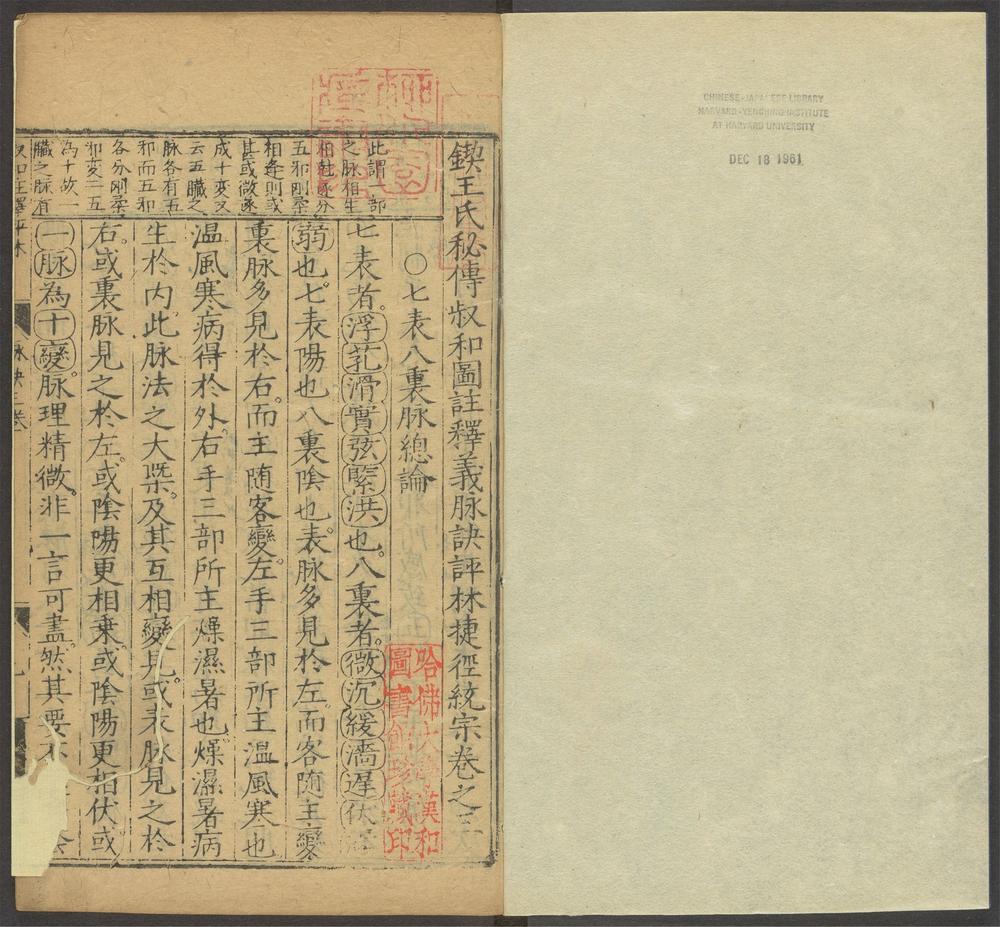 CHINESE-JAPANESE LIBRARY
HARVARD-YENCHING INSTITUTE
AT HARVARD UNIVERSITY
DEC 18 1961
鍥王氏秘傳叔和圖註釋義脉訣評林捷徑統宗卷之三
○七表八裏脉總論
七表者。浮芤滑實弦緊洪也。八裏者。微沉緩濇遲伏
弱也。七表陽也八裏陰也。表脉多見於左。而客隨主變
裏脉多見於右。而主随客變。左手三部所主溫風寒也
溫風寒病得於外。右手三部所主燥濕暑也。燥濕暑病
生於内。此脉法之大槩。及其互相變見。或表脉見之於
右。或裏脉見之於左。或陰陽更相乗。或陰陽更相伏。或
一脉為十變。脉理精微。非一言可盡。然其要不
此謂一部
之脉相生
相尅遂分
五邪剛柔
相逢則或
甚或微遂
成十变又
云五臟之
脉各有五
邪而五邪
各分剛柔
邪变二五
為十故一
臟之脉有
叔和註釋評林
脉訣三卷
哈佛大學漢和
圖書館珍藏印